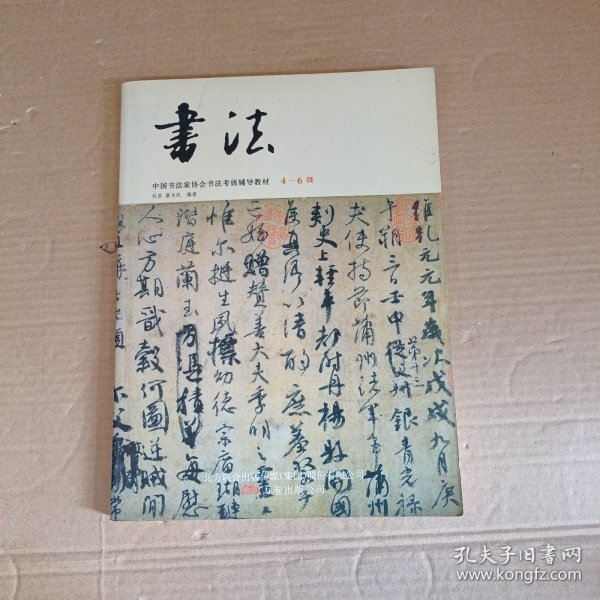 書法
中国书法家协会书法考级辅导教材 4-6级
编著
維乾元元年歲次戊戌九月庚
午朔三日壬申第十三從父銀青光禄
夫使持節蒲州諸軍事蒲州
刺史上輕車都尉丹楊縣開國
侯真卿以清酌庶羞祭于
亡姪贈贊善大夫季明之靈
惟爾挺生夙標幼德宗廟瑚璉
階庭蘭玉每慰
人心方期戩穀何圖逆賊閒
北方联合出版传媒(集团)股份有限公司
万卷出版公司
孔夫子旧书网
www.kongfz.com